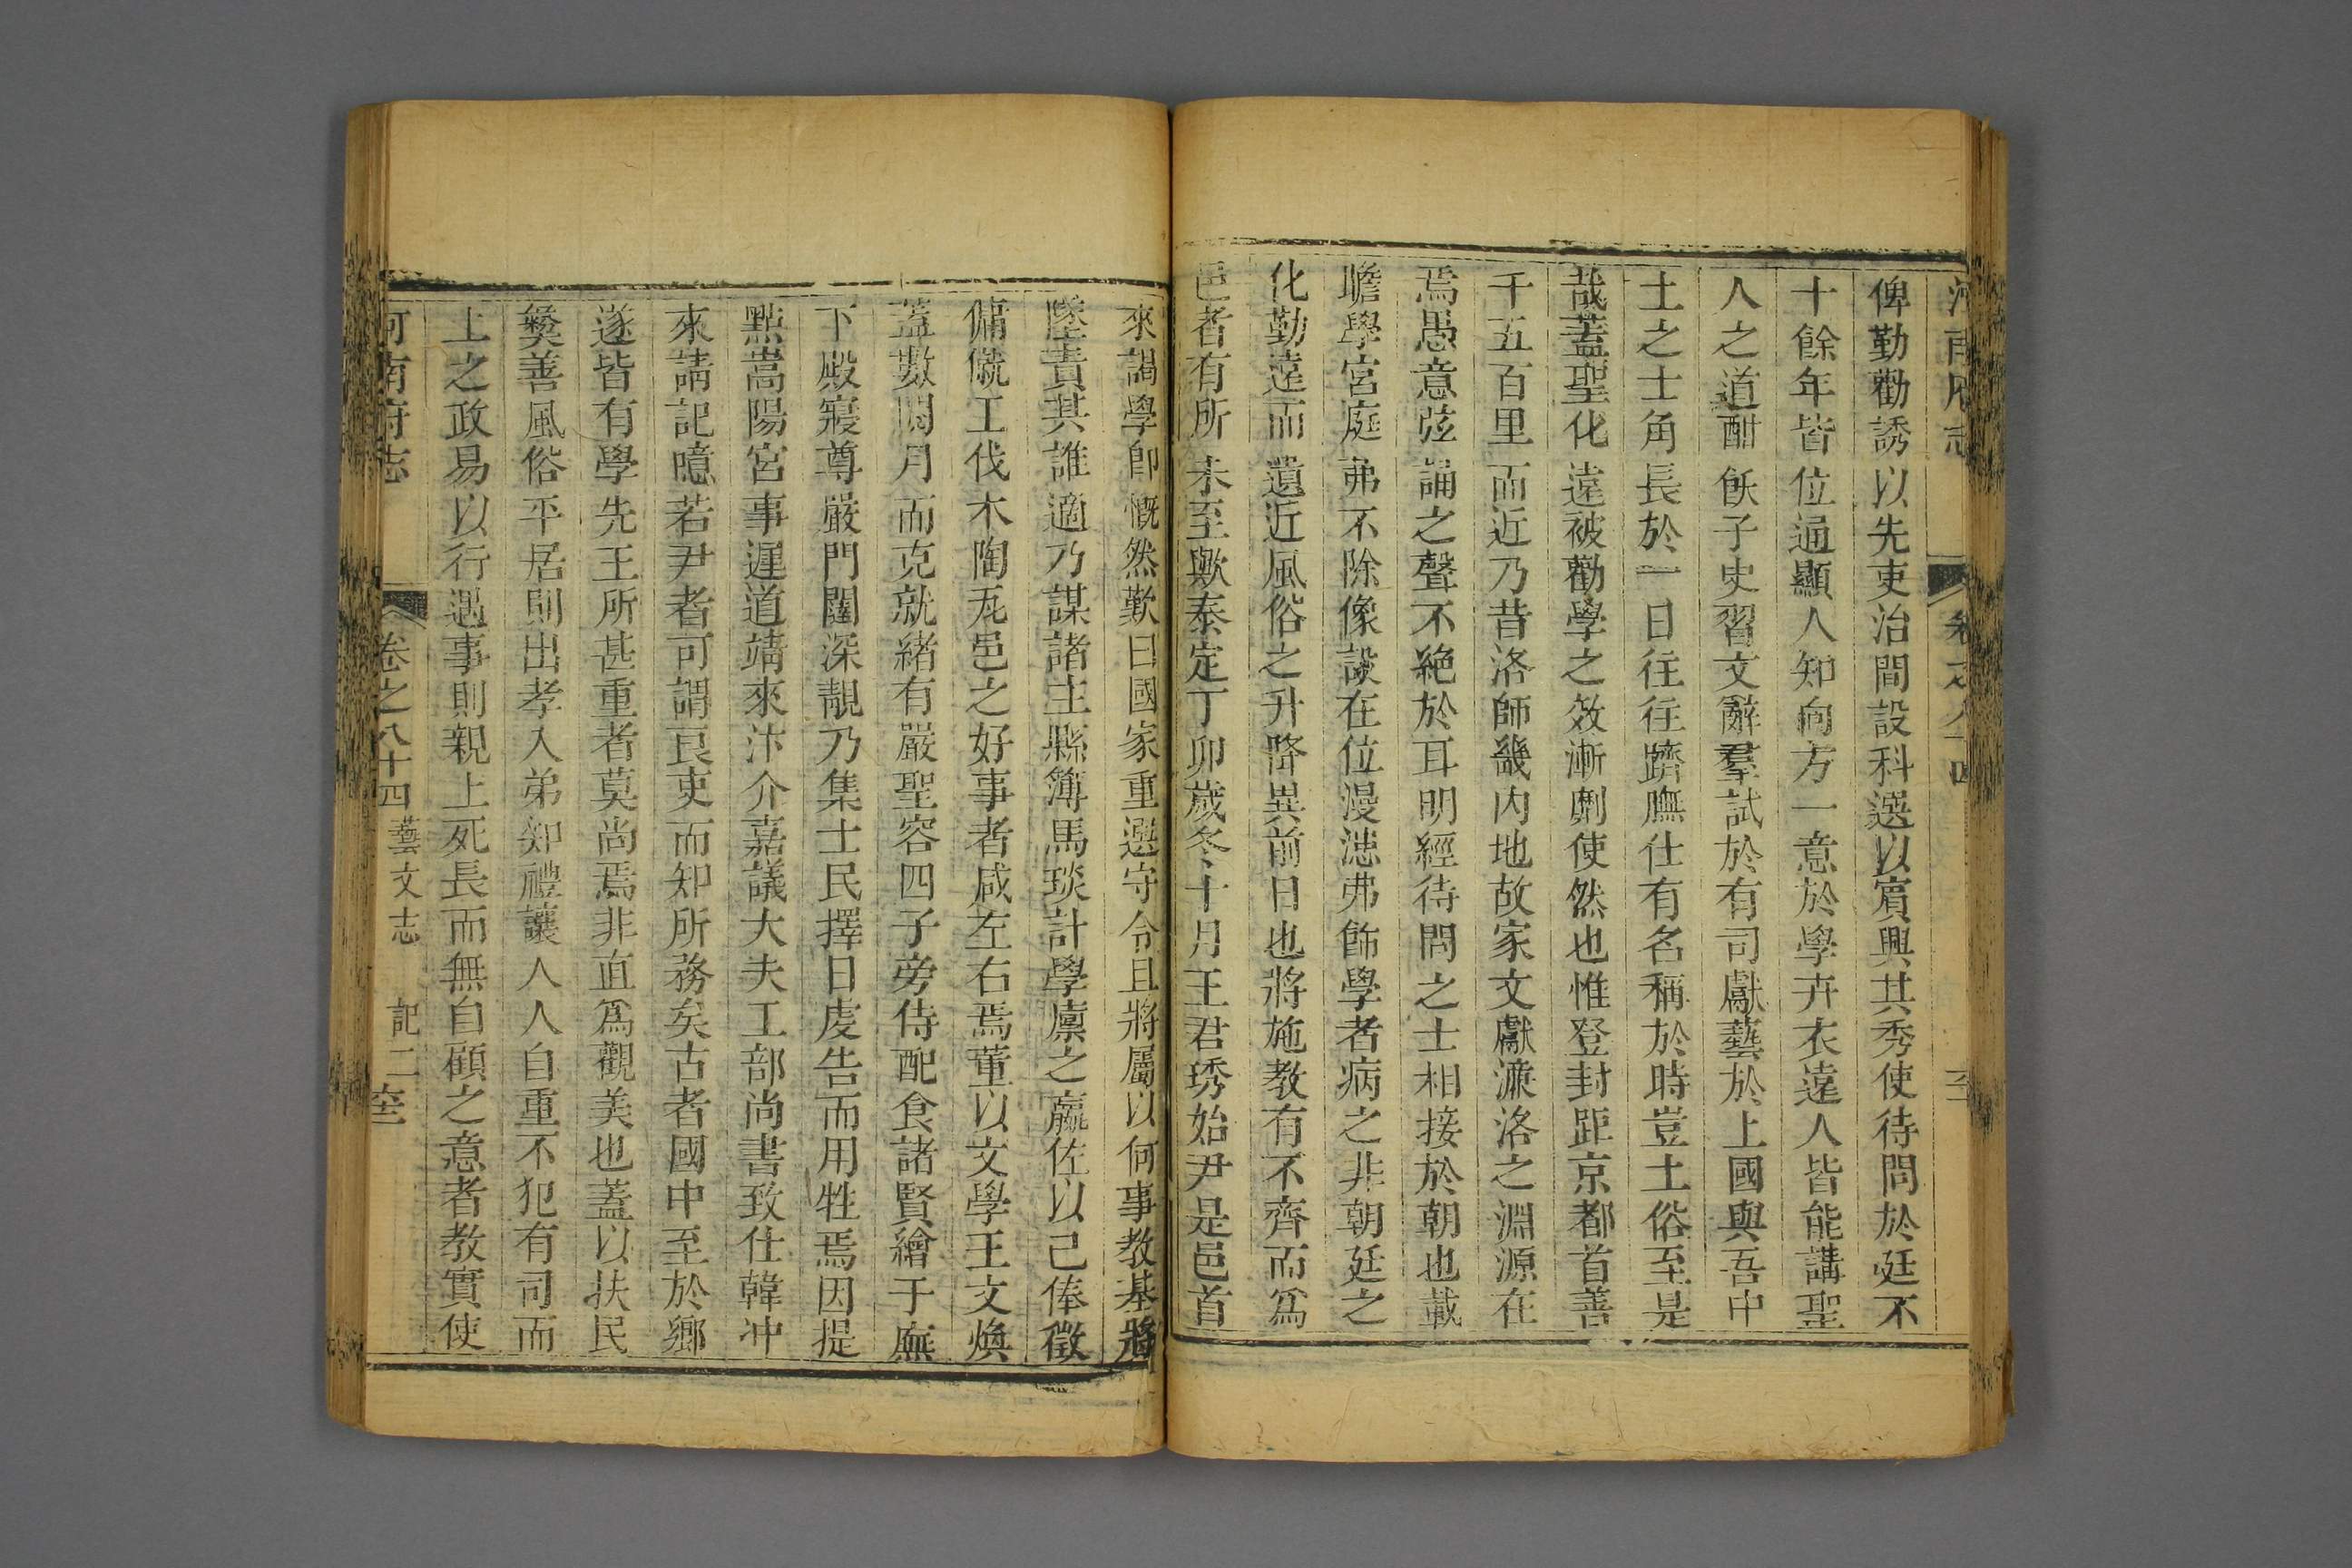 河南府志 卷之八十四
俾勤勸誘以先吏治間設科選以賓興其秀使待問於廷不
十餘年皆位通顯人知向方一意於學卉衣遠人皆能講聖
人之道酣飫子史習文辭羣試於有司獻藝於上國與吾中
土之士角長於一日往往躋膴仕有名稱於時豈土俗至是
哉蓋聖化遠被勸學之效漸劘使然也惟登封距京都首善
千五百里而近乃昔洛師畿内地故家文獻濂洛之淵源在
焉愚意弦誦之聲不絶於耳明經待問之士相接於朝也載
瞻學宮庭茀不除像設在位漫漶弗飾學者病之非朝廷之
化勤遠而遺近風俗之升降異前日也將施教有不齊而爲
邑者有所未至歟泰定丁卯歲冬十月王君琇始尹是邑首
來謁學卽慨然歎曰國家重選守令且將屬以何事教基將
墜責其誰適乃謀諸主縣簿馬琰計學廩之贏佐以己俸徵
傭僦工伐木陶瓦邑之好事者咸左右焉董以文學王文煥
蓋數閱月而克就緒有嚴聖容四子旁侍配食諸賢繪于廡
下殿寢尊嚴門闥深靚乃集士民擇日虔告而用牲焉因提
點嵩陽宮事遲道靖來汴介嘉議大夫工部尚書致仕韓冲
來請記噫若尹者可謂良吏而知所務矣古者國中至於鄉
遂皆有學先王所甚重者莫尚焉非直爲觀美也蓋以扶民
彝善風俗平居則出孝入弟知禮讓人人自重不犯有司而
上之政易以行遇事則親上死長而無自顧之意者教實使
河南府志 卷之八十四 藝文志 記二